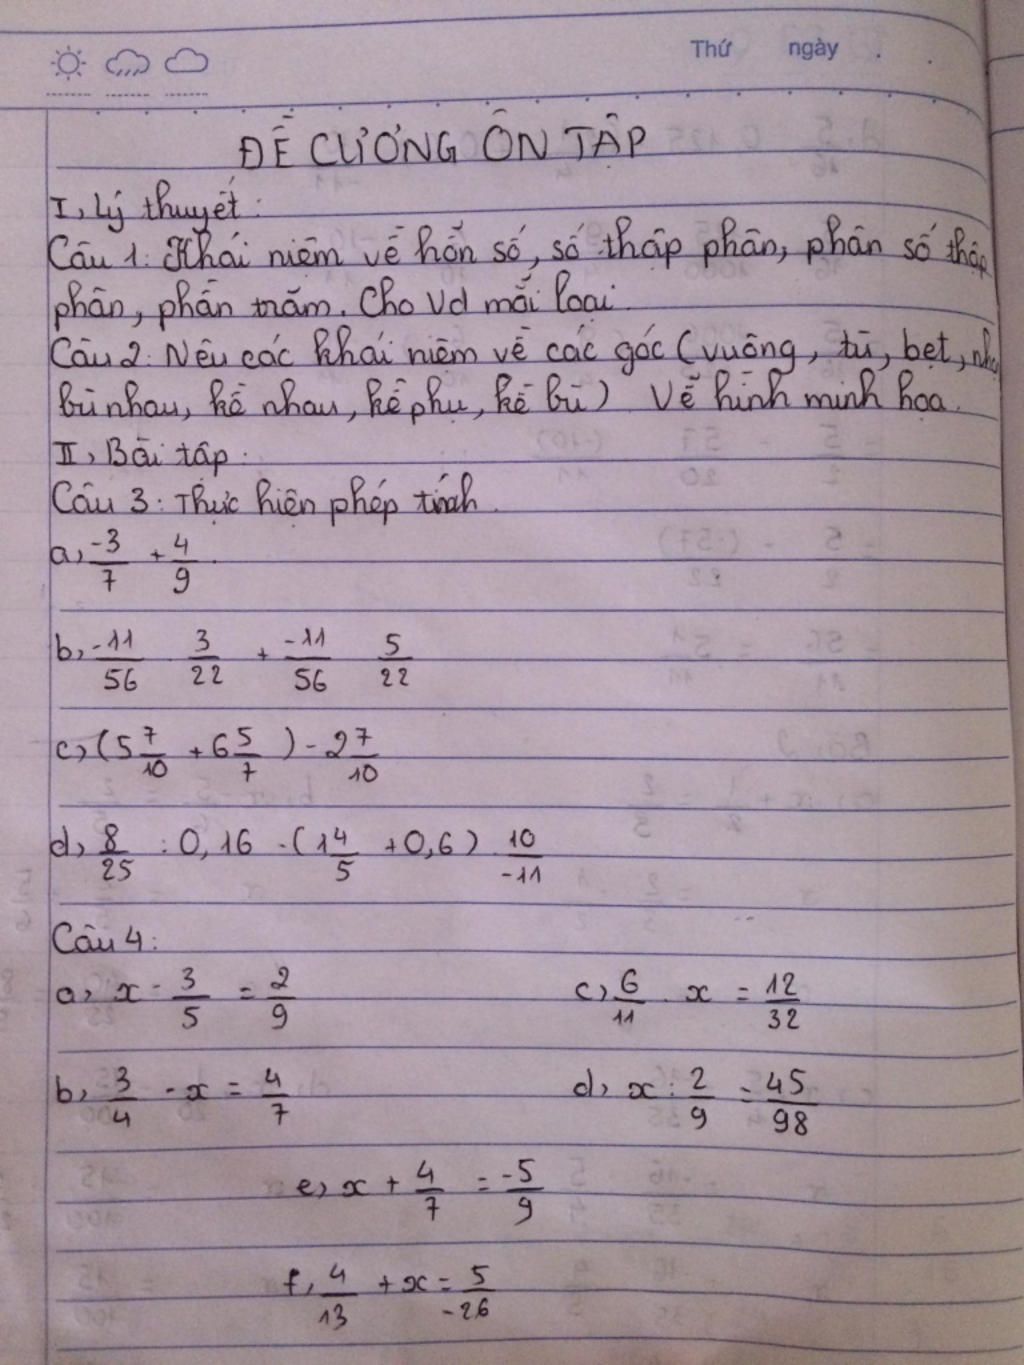 Thứ ngày .
ĐỀ CƯƠNG ÔN TẬP
I, Lý thuyết:
Câu 1: Khái niệm về hỗn số, số thập phân, phân số thập
phân, phần trăm. Cho Vd mỗi loại.
Câu 2: Nêu các khái niệm về các góc (vuông, tù, bẹt,
bù nhau, kề nhau, kề phụ, kề bù) Vẽ hình minh họa.
II, Bài tập:
Câu 3: Thực hiện phép tính.
a, -3/7 + 4/9
b, -11/56 . 3/22 + -11/56 . 5/22
c, (5 7/10 + 6 5/7) - 2 7/10
d, 8/25 : 0,16 - (1 4/5 + 0,6) . 10/-11
Câu 4:
a, x - 3/5 = 2/9 c, 6/11 . x = 12/32
b, 3/4 - x = 4/7 d, x : 2/9 = 45/98
e, x + 4/7 = -5/9
f, 4/13 + x = 5/-26